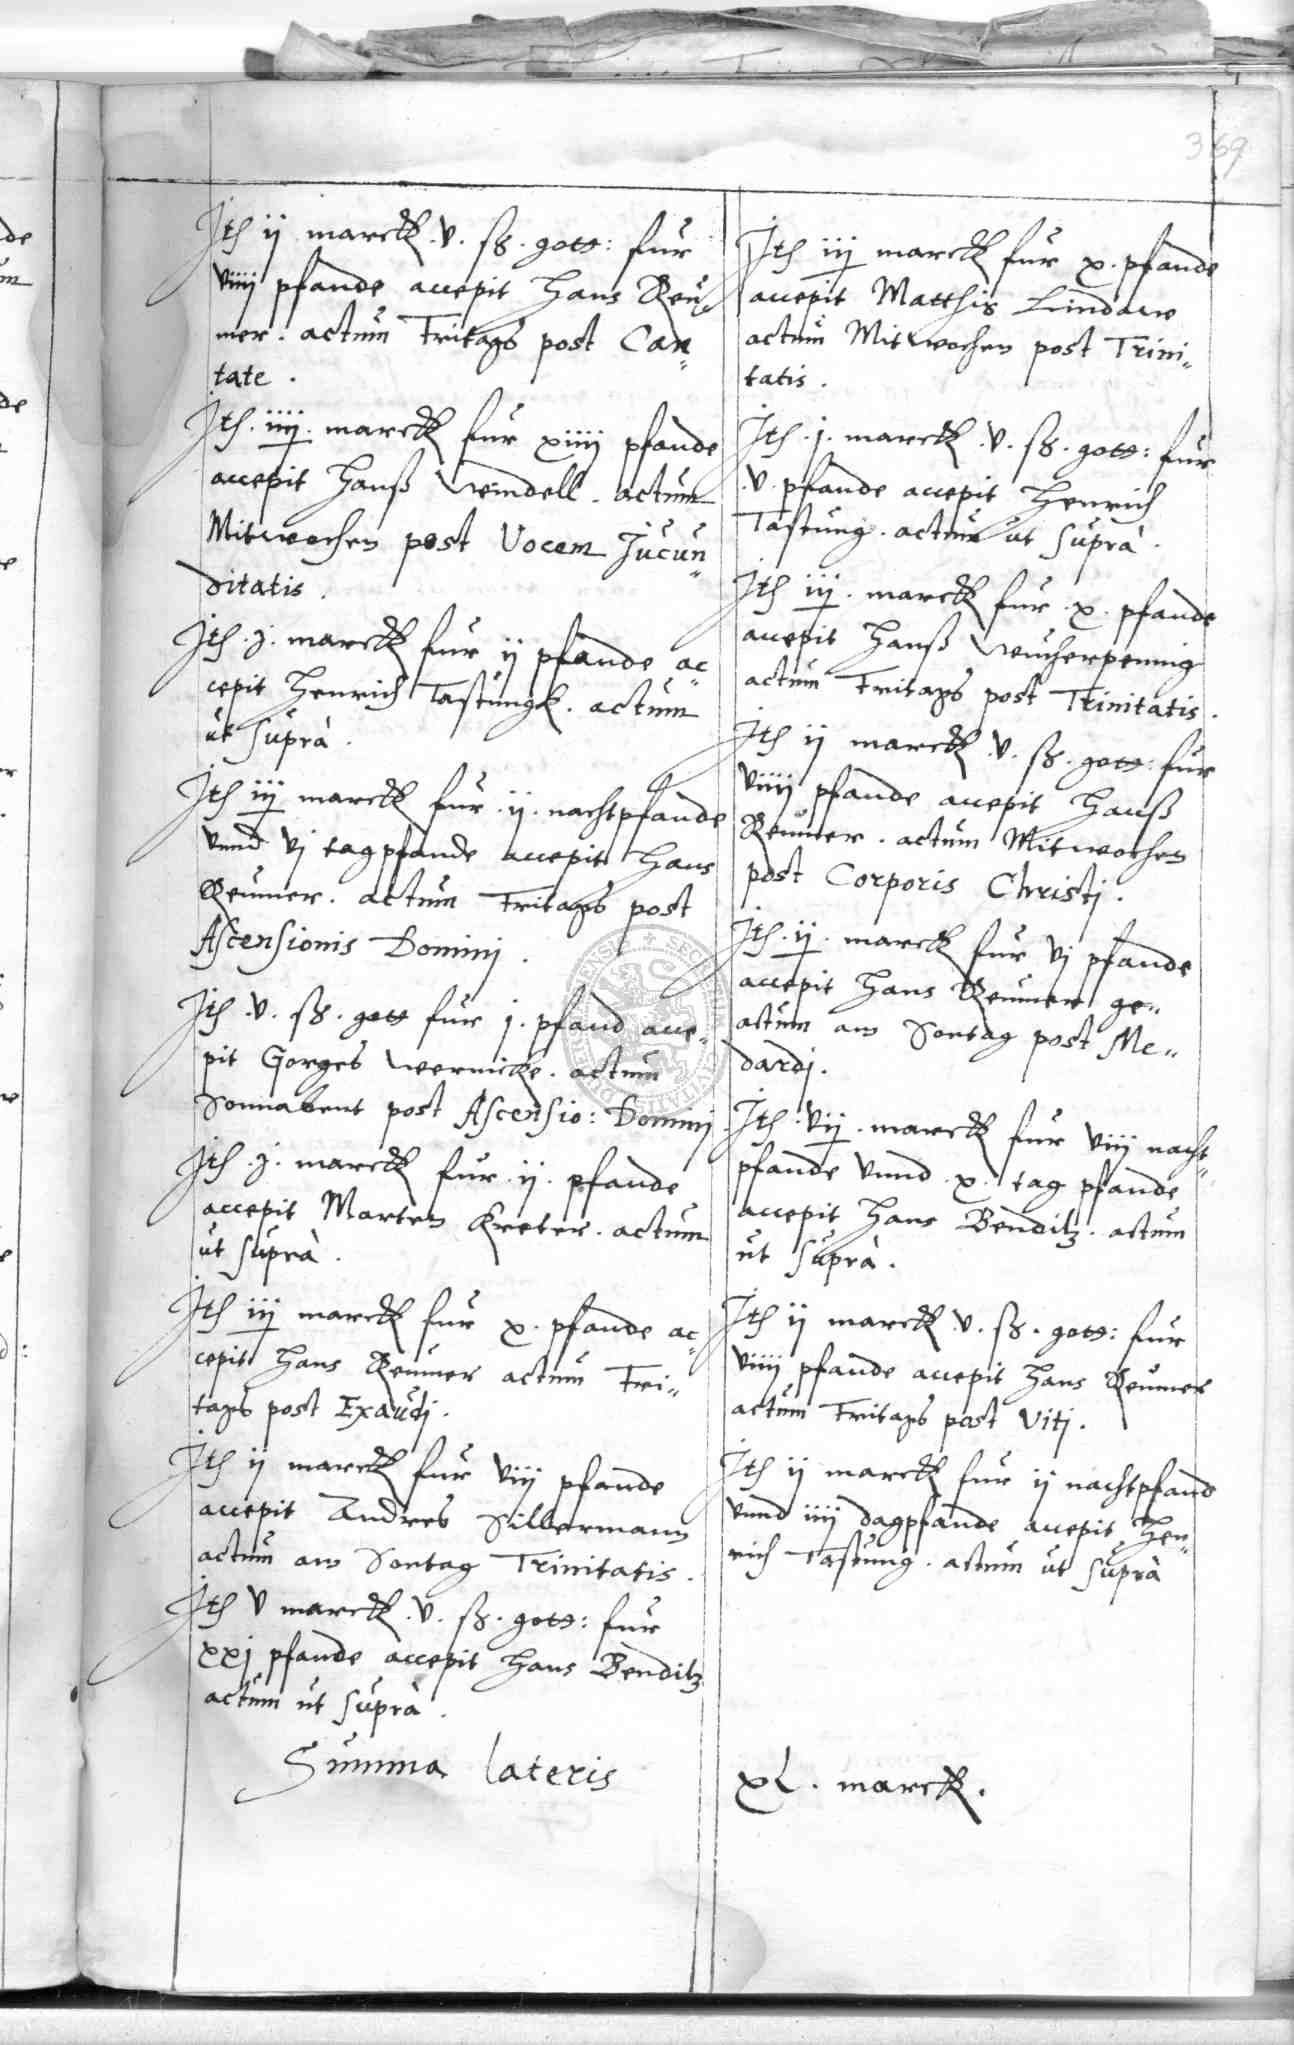 369
Jth ij marck .v. ß. gott: fur
viiij pfande accepit Hans Reu„
mer . actum Fritags post Can„
tate .
Jth . iiij . marck fur xiiij pfande
accepit Hanß Weindell . actum
Mitwochen post Vocem Jucun„
ditatis .
Jth . j . marck fur ij pfande ac„
cepit Henrich Tastungk . actum
ut suprà .
Jth iij marck fur . ij . nachtpfande
vnnd vj tagpfande accepit Hans
Reumer . actum Fritags post
Ascensionis Dominj .
Jth .v. ß . gott fur j . pfand acce„
pit Gorges Wernicke . actum
Sonnabent post Ascensio: Dominj .
Jth . j . marck fur . ij . pfande
accepit Marten Kreter . actum
ut suprà .
Jth iij marck fur x . pfande ac„
cepit Hans Reumer actum Fri„
tags post Exaudj .
Jth ij marck fur viij pfande
accepit Andres Silbermann
actum am Sontag Trinitatis .
Jth v marck .v. ß . gott: fur
xxj pfande accepit Hans Benditz
actum ut suprà .
Summa lateris
Jth iij marck fur x . pfande
accepit Matthis Lindaw
actum Mitwochen post Trini„
tatis .
Jth . j . marck .v. ß . gott: fur
.v. pfande accepit Henrich
Tastung . actum ut suprà .
Jth iij . marck fur . x . pfande
accepit Hanß Wucherpennig
actum Fritags post Trinitatis .
Jth ij marck .v. ß . gott: fur
viiij pfande accepit Hanß
Reumer . actum Mitwochen
post Corporis Christj .
Jth . ij . marck fur vj pfande
accepit Hans Reumer ge„
actum am Sontag post Me„
dardj .
Jth . vij . marck fur viij nacht„
pfande vnnd . x . tag pfande
accepit Hans Benditz . actum
ut suprà .
Jth ij marck .v. ß . gott: fur
viiij pfande accepit Hans Reumer
actum Fritags post Vitj .
Jth ij marck fur ij nachtpfand
vnnd iiij dagpfande accepit Hen„
rich Tastung . actum ut suprà
xL . marck .